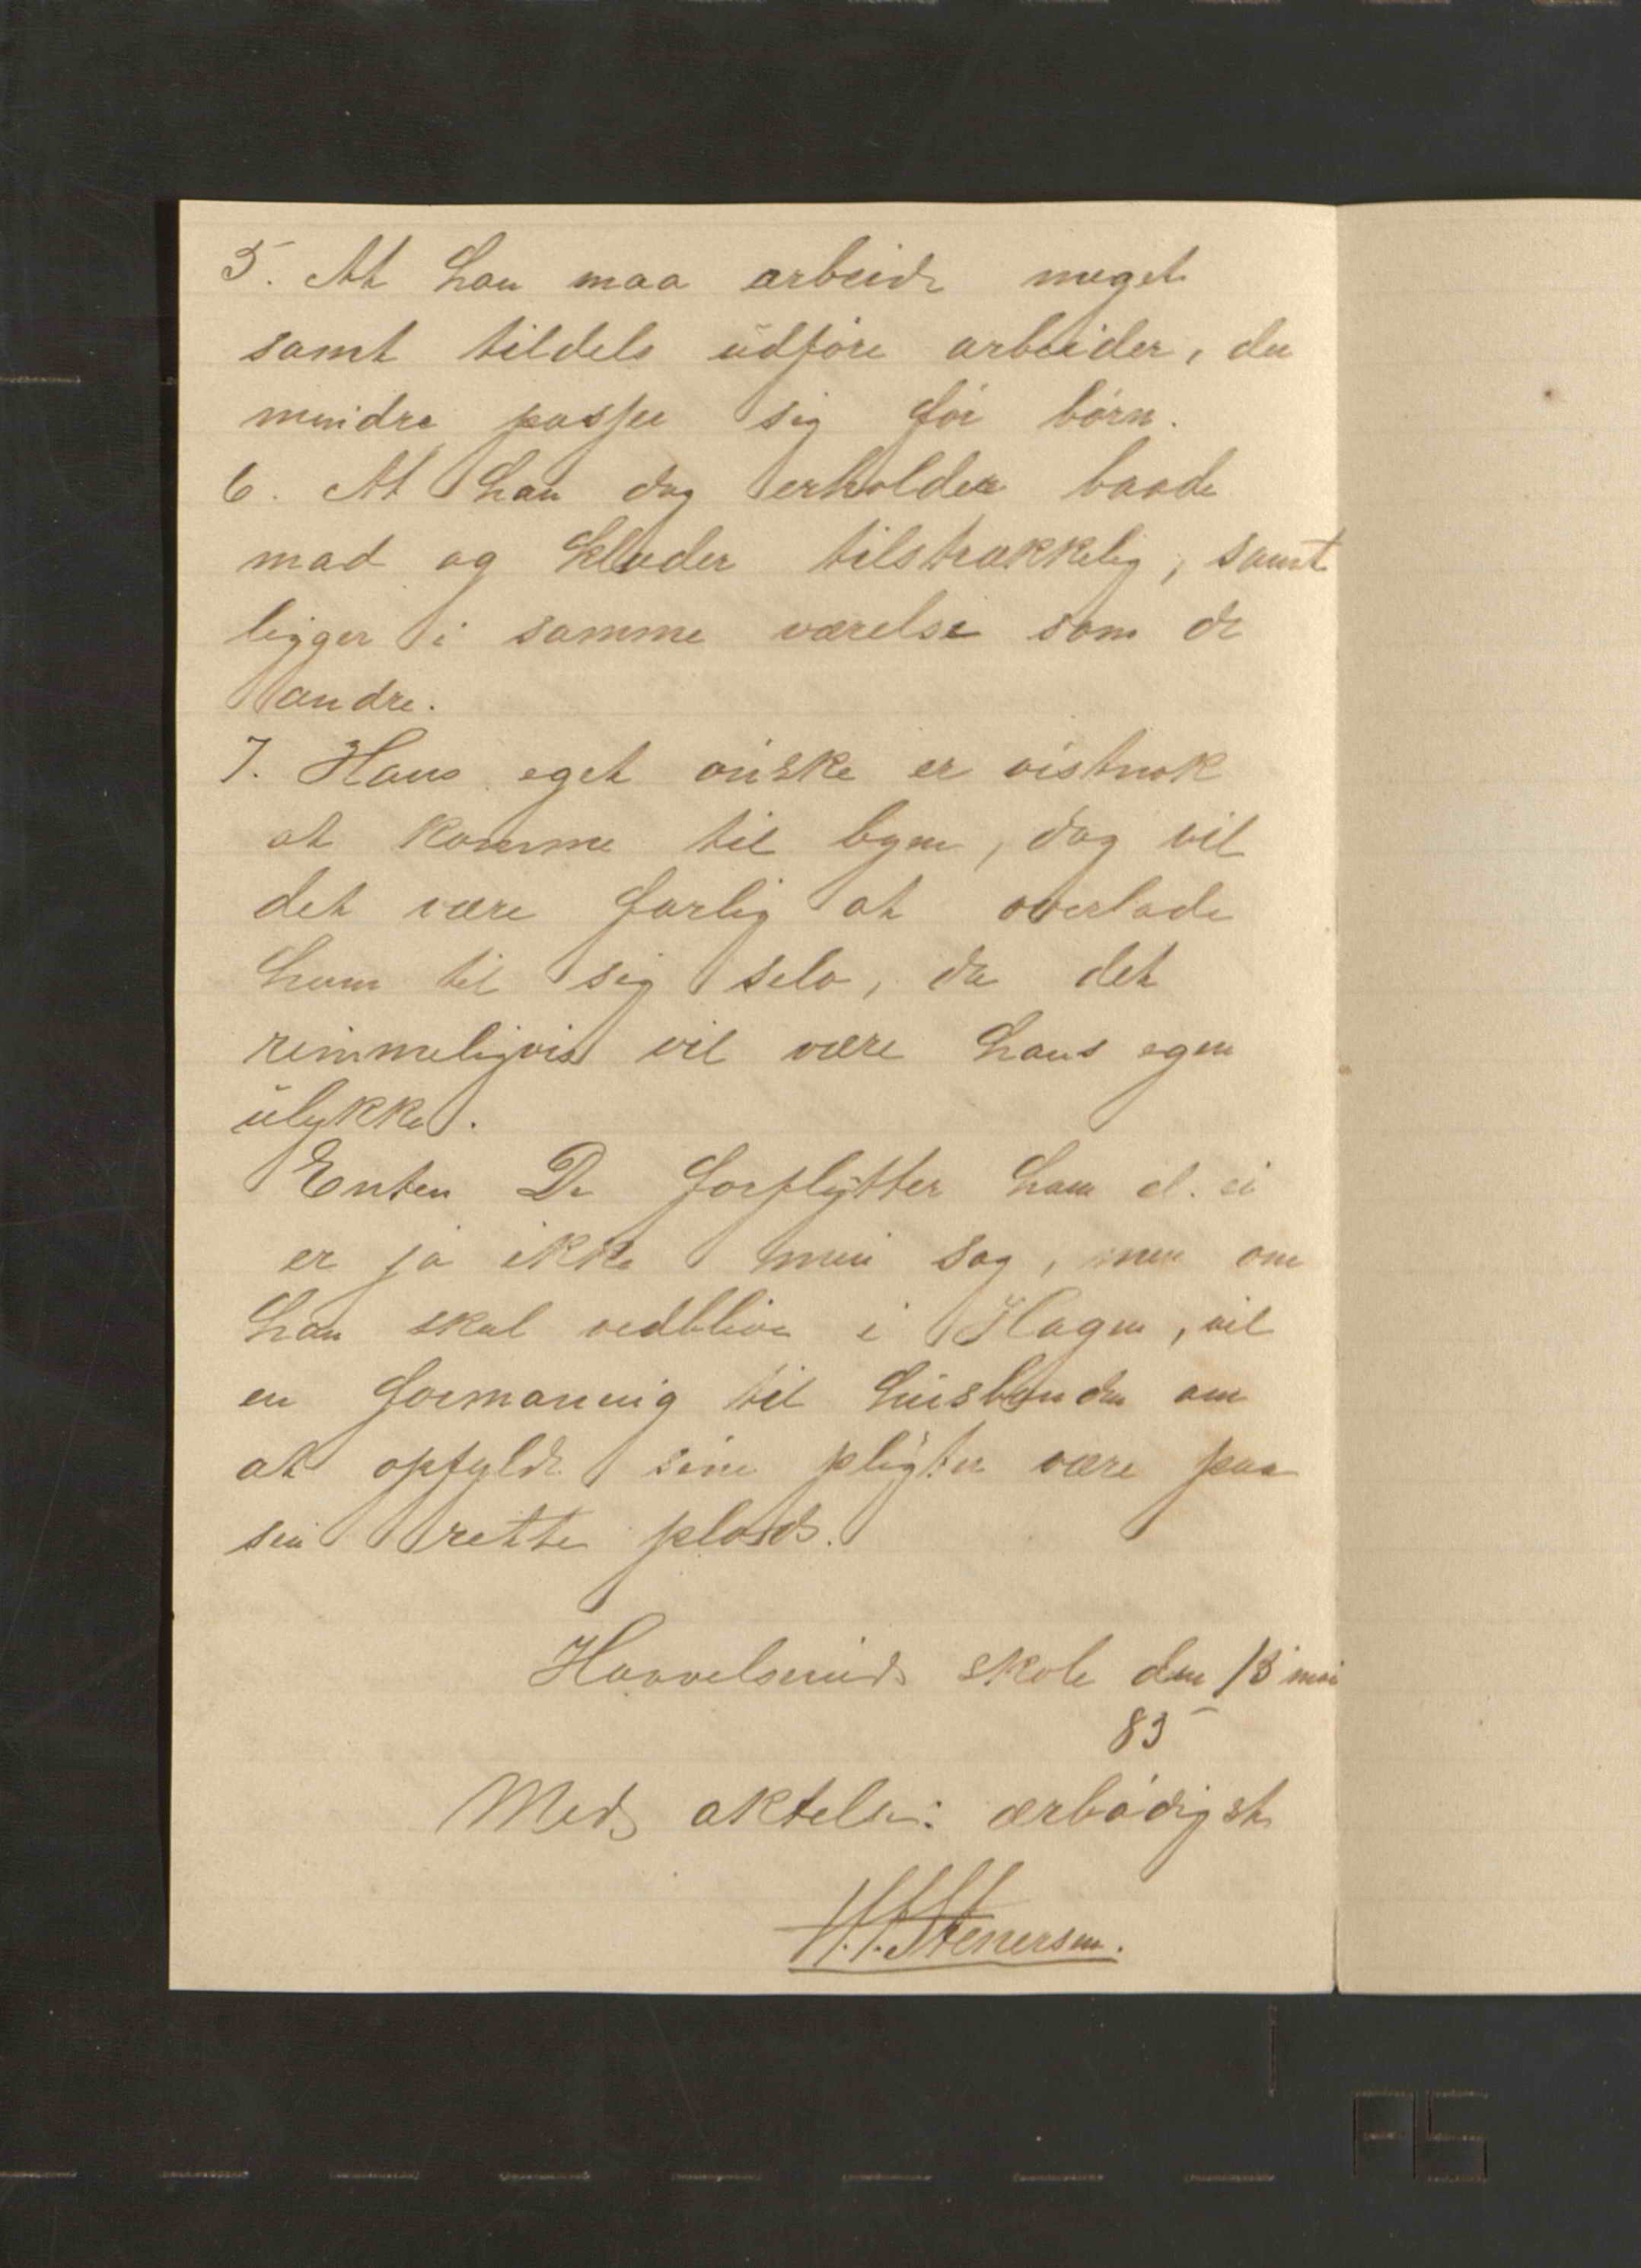 5. At han maa arbeide meget
samt tildels udføre arbeider, der
mindre passer sig for børn.
6. At han dog erholder baade
mad og klæder tilstrækkelig, samt
ligger i samme værelse som de
andre.
7. Hans eget ønske er vistnok
at komme til byen, dog vil
det være farlig at overlade
ham til sig selv, da det
rimmeligvis vil være hans egen
ulykke.
Enten De forflytter ham el. ei
er ja ikke min sag, men om
han skal vedblive i Hagen, vil
en formaning til husbonden om
at opfylde sine pligter være paa
sin rette plads.
Havvelsruds skole den 13 mai
85
Med aktelse: ærbødigst
H. H. Stenersen.